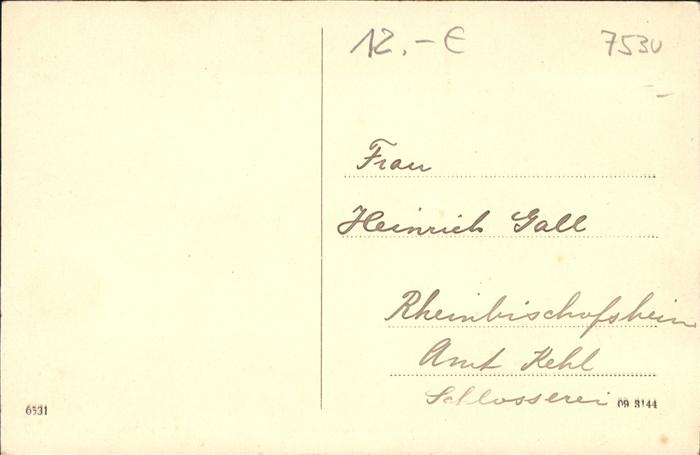 12.-€
7530
Frau
Heinrich Gall
Rheinbischofsheim
Amt Kehl
Schlosserei
6531
09 3144